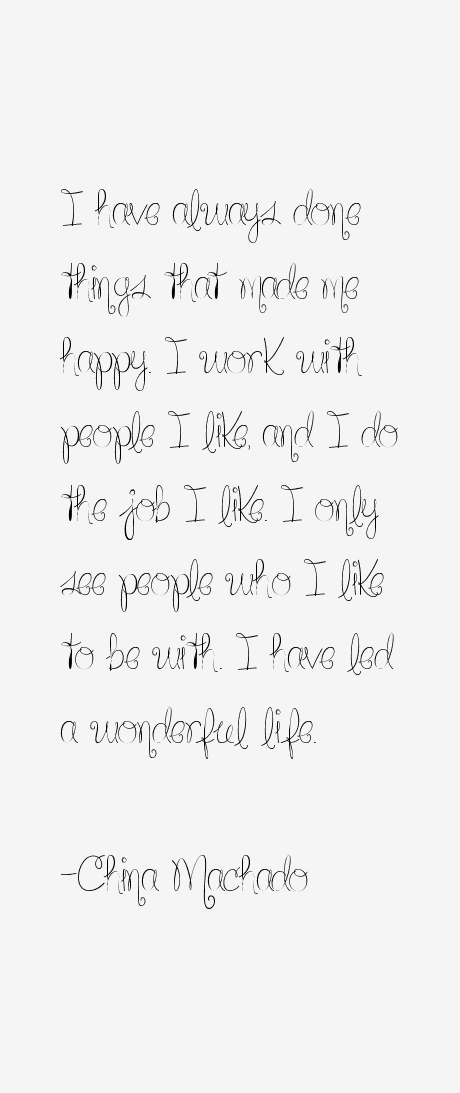 I have always done
things that made me
happy. I work with
people I like, and I do
the job I like. I only
see people who I like
to be with. I have led
a wonderful life.
-China Machado